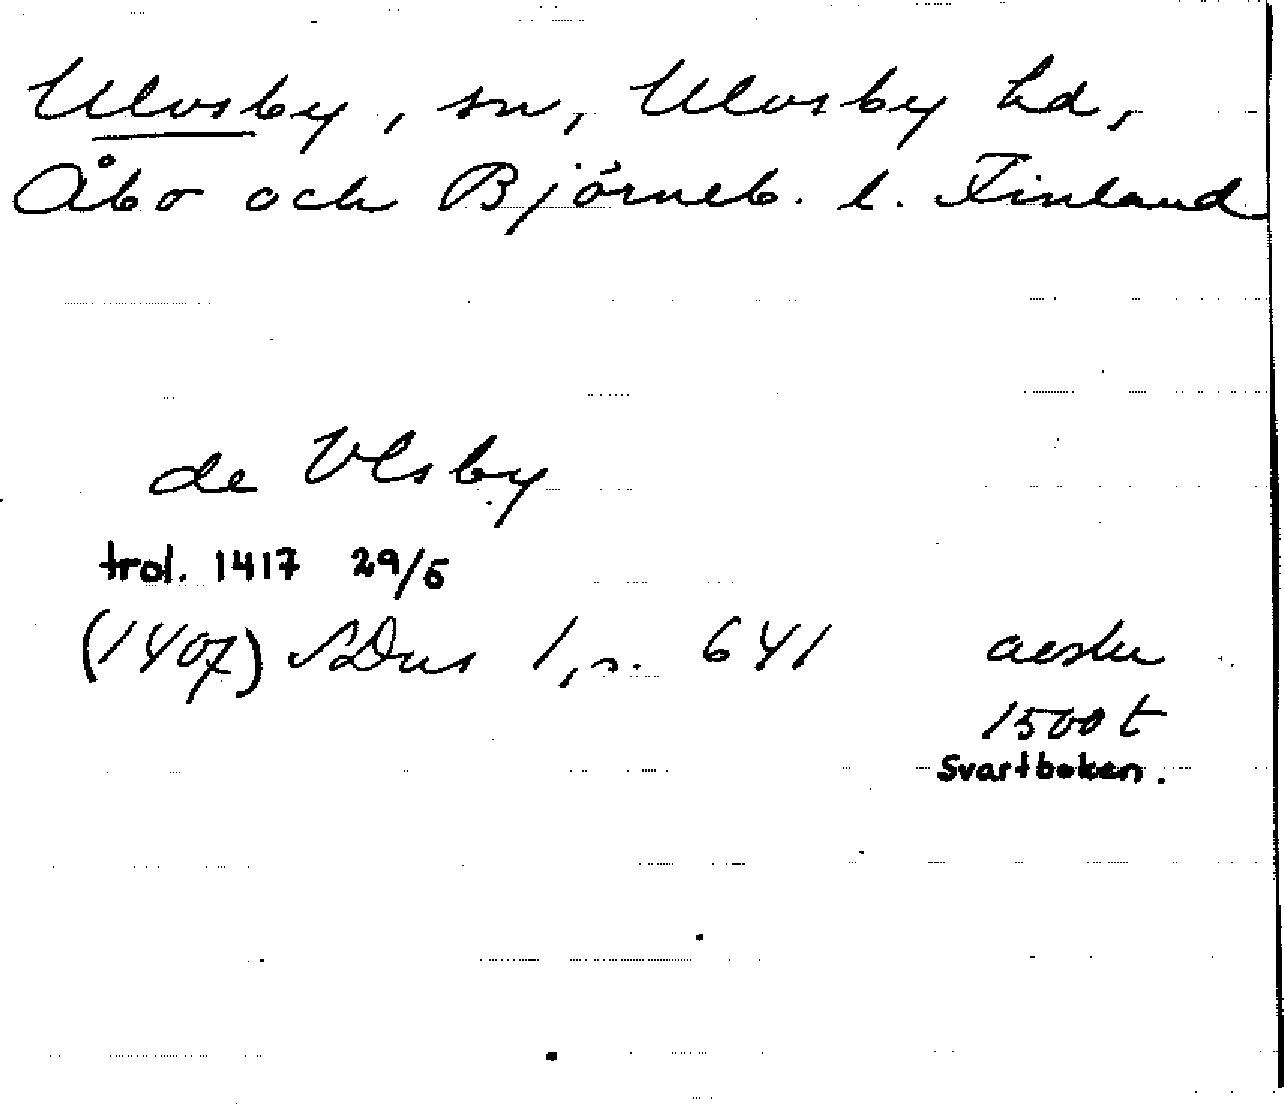 Ulvsby, sn, Ulvsby hd,
Åbo och Björneb. l. Finland
de Vlsby
trol. 1417 29/5
(1407) SDns 1, s. 641 avskr
1500 t
Svartboken.